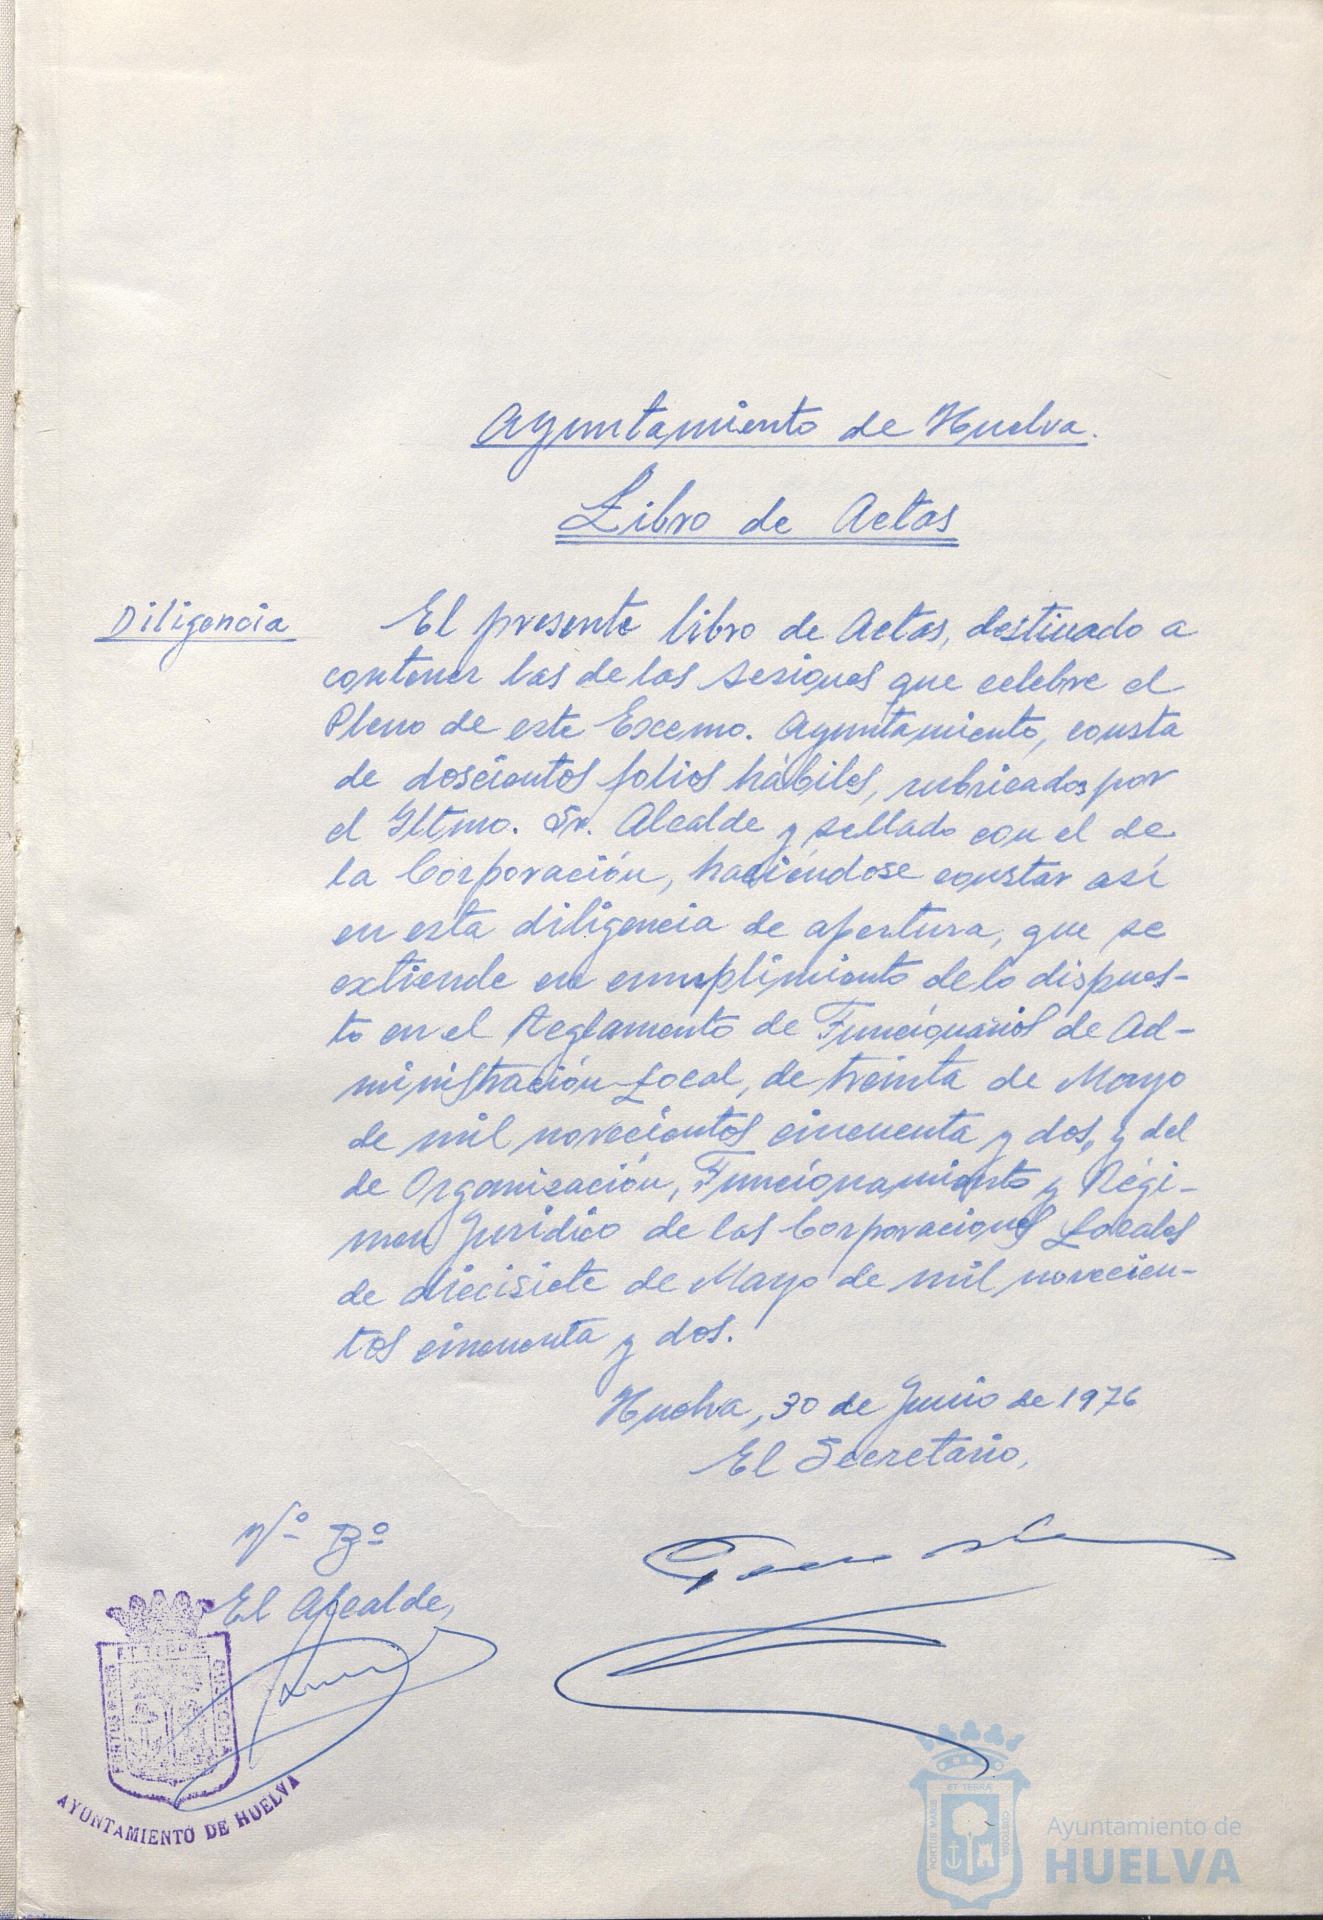 Ayuntamiento de Huelva.
Libro de Actas
Diligencia
El presente libro de Actas, destinado a
contener las de las sesiones que celebre el
Pleno de este Excemo. Ayuntamiento, consta
de doscientos folios hábiles, rubricados por
el Iltmo. Sr. Alcalde y sellado con el de
la Corporación, haciéndose constar así
en esta diligencia de apertura, que se
extiende en cumplimiento de lo dispues-
to en el Reglamento de Funcionarios de Ad-
ministración Local, de treinta de Mayo
de mil novecientos cincuenta y dos, y del
de Organización, Funcionamiento y Régi-
men Jurídico de las Corporaciones Locales
de diecisiete de Mayo de mil novecien-
tos cincuenta y dos.
Huelva, 30 de Junio de 1976
El Secretario,
Vº Bº
El Alcalde,
PORTUS MARIS ET TERRAE CUSTODIA
AYUNTAMIENTO DE HUELVA
PORTUS MARIS ET TERRA CUSTODIA
Ayuntamiento de
HUELVA